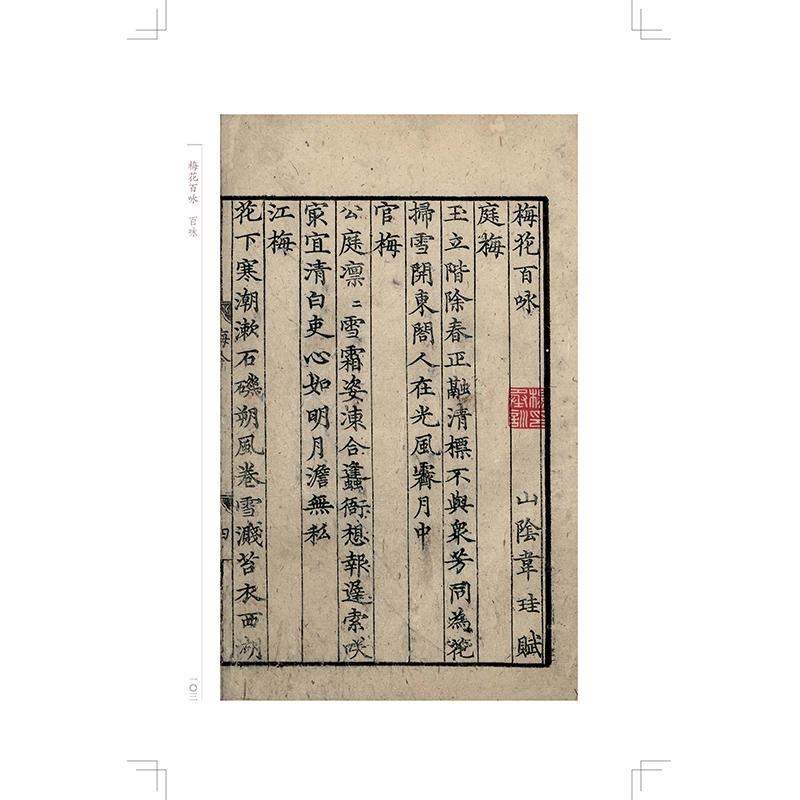 梅花百咏 山陰韋珪賦
庭梅
玉立階除春正融清標不與衆芳同為花
掃雪開東閤人在光風霽月中
官梅
公庭凛二雪霜姿凍合蠭衙想報遲索咲
㝡宜清白吏心如明月澹無私
江梅
花下寒潮漱石磯朔風卷雪濺苔衣西湖
梅花百咏 百咏
一〇三